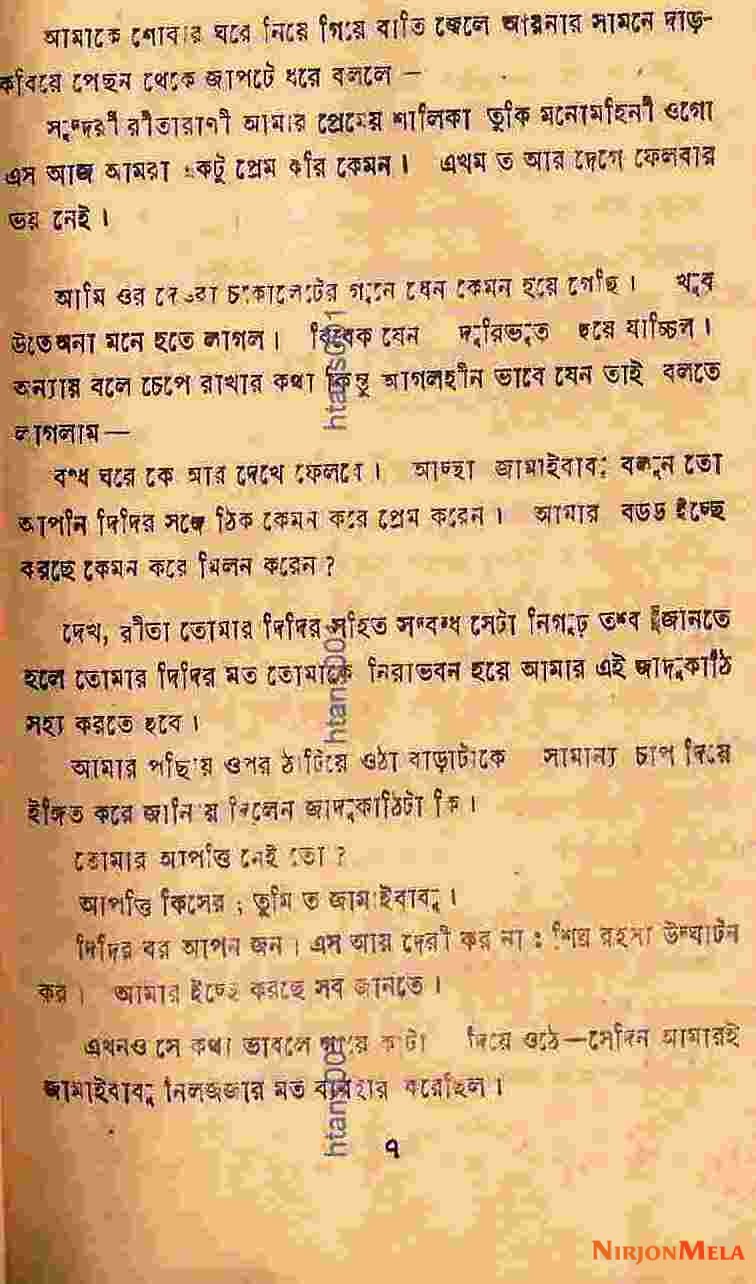 আমাকে শোবার ঘরে নিয়ে গিয়ে বাতি জ্বেলে আয়নার সামনে দাড়-
করিয়ে পেছন থেকে জাপটে ধরে বললে —
সুন্দরী রীতারাণী আমার প্রেমের শালিকা তুকি মনোমহিনী ওগো
এস আজ আমরা একটু প্রেম করি কেমন। এখন ত আর দেগে ফেলবার
ভয় নেই।
আমি ওর দেওয়া চকোলেটের গুনে যেন কেমন হয়ে গেছি। খুব
উত্তেজনা মনে হতে লাগল। বিবেক যেন দুরিভুত হয়ে যাচ্চিল।
অন্যায় বলে চেপে রাখার কথা কিন্তু আগলহীন ভাবে যেন তাই বলতে
লাগলাম—
বন্ধ ঘরে কে আর দেখে ফেলবে। আচ্ছা জামাইবাবু বলুন তো
আপনি দিদির সঙ্গে ঠিক কেমন করে প্রেম করেন। আমার বডড ইচ্ছে
করছে কেমন করে মিলন করেন ?
দেখ, রীতা তোমার দিদির সহিত সম্বন্ধ সেটা নিগূঢ় তত্ত্ব জানতে
হলে তোমার দিদির মত তোমাকে নিরাভবন হয়ে আমার এই জাদুকাঠি
সহ্য করতে হবে।
আমার পাছায় ওপর ঠাটিয়ে ওঠা বাড়াটাকে সামান্য চাপ দিয়ে
ইঙ্গিত করে জানিয়ে দিলেন জাদুকাঠিটা কি।
তোমার আপত্তি নেই তো ?
আপত্তি কিসের ; তুমি ত জামাইবাবু।
দিদির বর আপন জন। এস আয় দেরী কর না : শিঘ্র রহস্য উদ্ঘাটন
কর। আমার ইচ্ছে করছে সব জানতে।
এখনও সে কথা ভাবলে গায়ে কাটা দিয়ে ওঠে—সেদিন আমারই
জামাইবাবু নিলজজার মত ব্যবহার করেছিল।
৭
htans001
htans001
htans001
NIRJONMELA